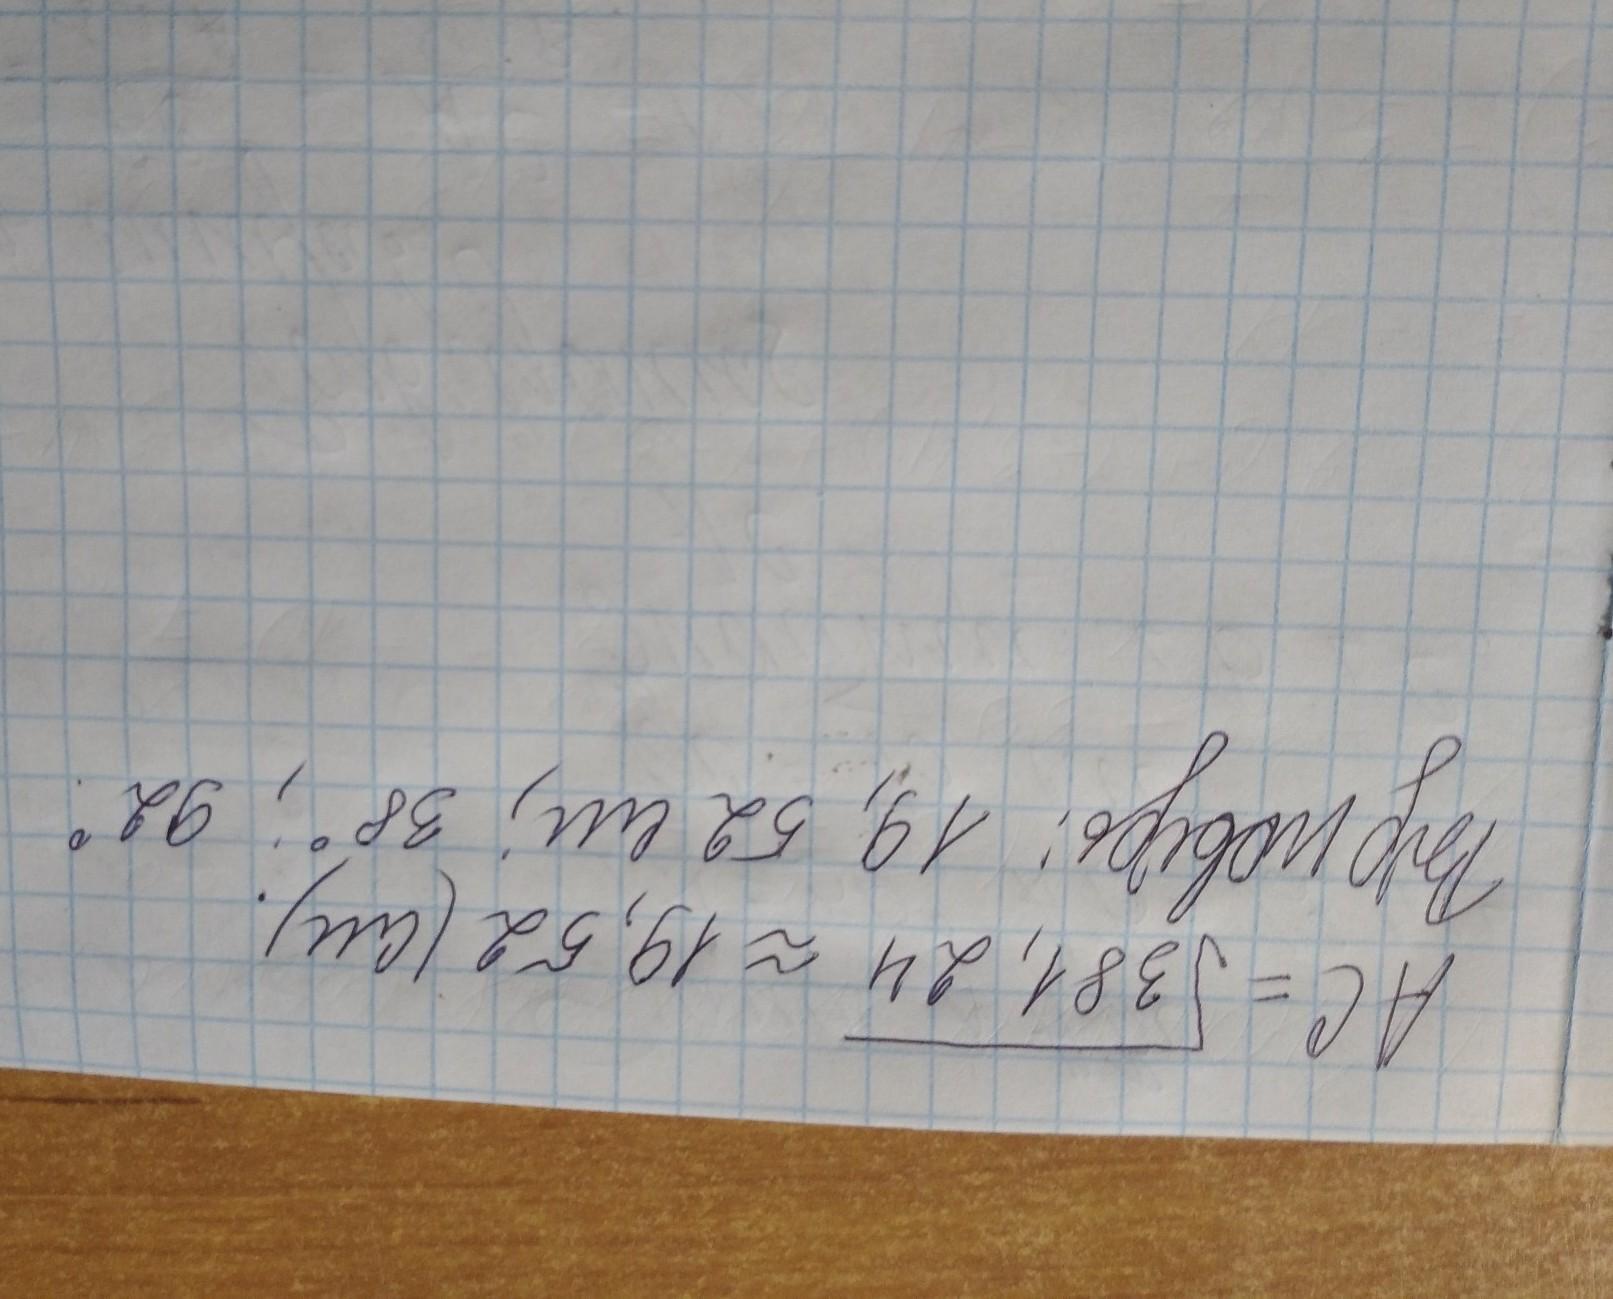 AC = √381,24 ≈ 19,52 (см).
Відповідь: 19,52 см; 38°; 92°.